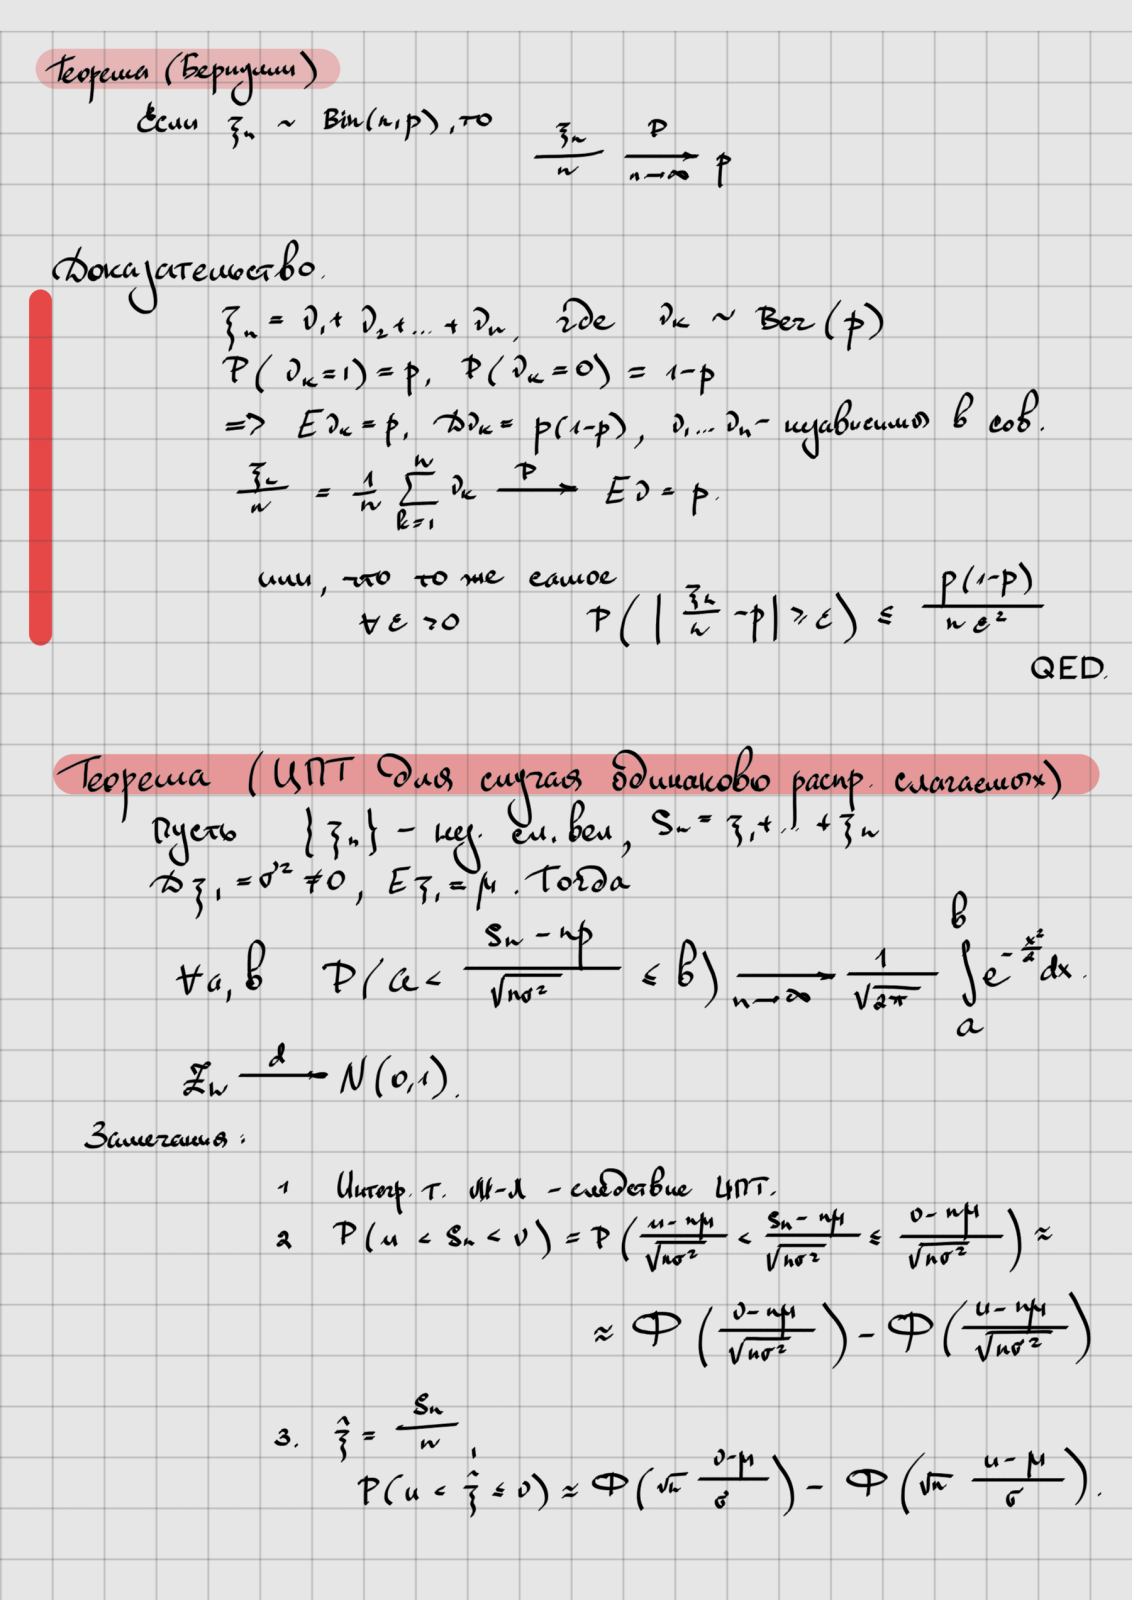 Теорема (Бернулли)
Если ξₙ ~ Bin(n,p), то ξₙ/n →(P, n→∞) p
Доказательство.
ξₙ = ν₁ + ν₂ + ... + νₙ, где νₖ ~ Ber(p)
P(νₖ=1) = p, P(νₖ=0) = 1-p
=> Eνₖ = p, Dνₖ = p(1-p), ν₁...νₙ - независимы в сов.
ξₙ/n = 1/n ∑_{k=1}^{n} νₖ →(P) Eν = p.
или, что то же самое
∀ε >0 P(|ξₙ/n - p| ≥ ε) ≤ p(1-p)/(nε²)
QED.
Теорема (ЦПТ для случая одинаково распр. слагаемых)
Пусть {ξₙ} - нез. сл. вел, Sₙ = ξ₁ + ... + ξₙ
Dξ₁ = σ² ≠ 0, Eξ₁ = μ. Тогда
∀a, b P(a < (Sₙ - np)/√(nσ²) ≤ b) →(n→∞) 1/√(2π) ∫ₐᵇ e^{-x²/2} dx.
Zₙ →(d) N(0,1).
Замечания:
1 Интегр. т. М-Л - следствие ЦПТ.
2 P(u < Sₙ < v) = P((u-nμ)/√(nσ²) < (Sₙ-nμ)/√(nσ²) ≤ (v-nμ)/√(nσ²)) ≈
≈ Φ((v-nμ)/√(nσ²)) - Φ((u-nμ)/√(nσ²))
3. ξ̂ = Sₙ/n,
P(u < ξ̂ ≤ v) ≈ Φ(√n (v-μ)/σ) - Φ(√n (u-μ)/σ).